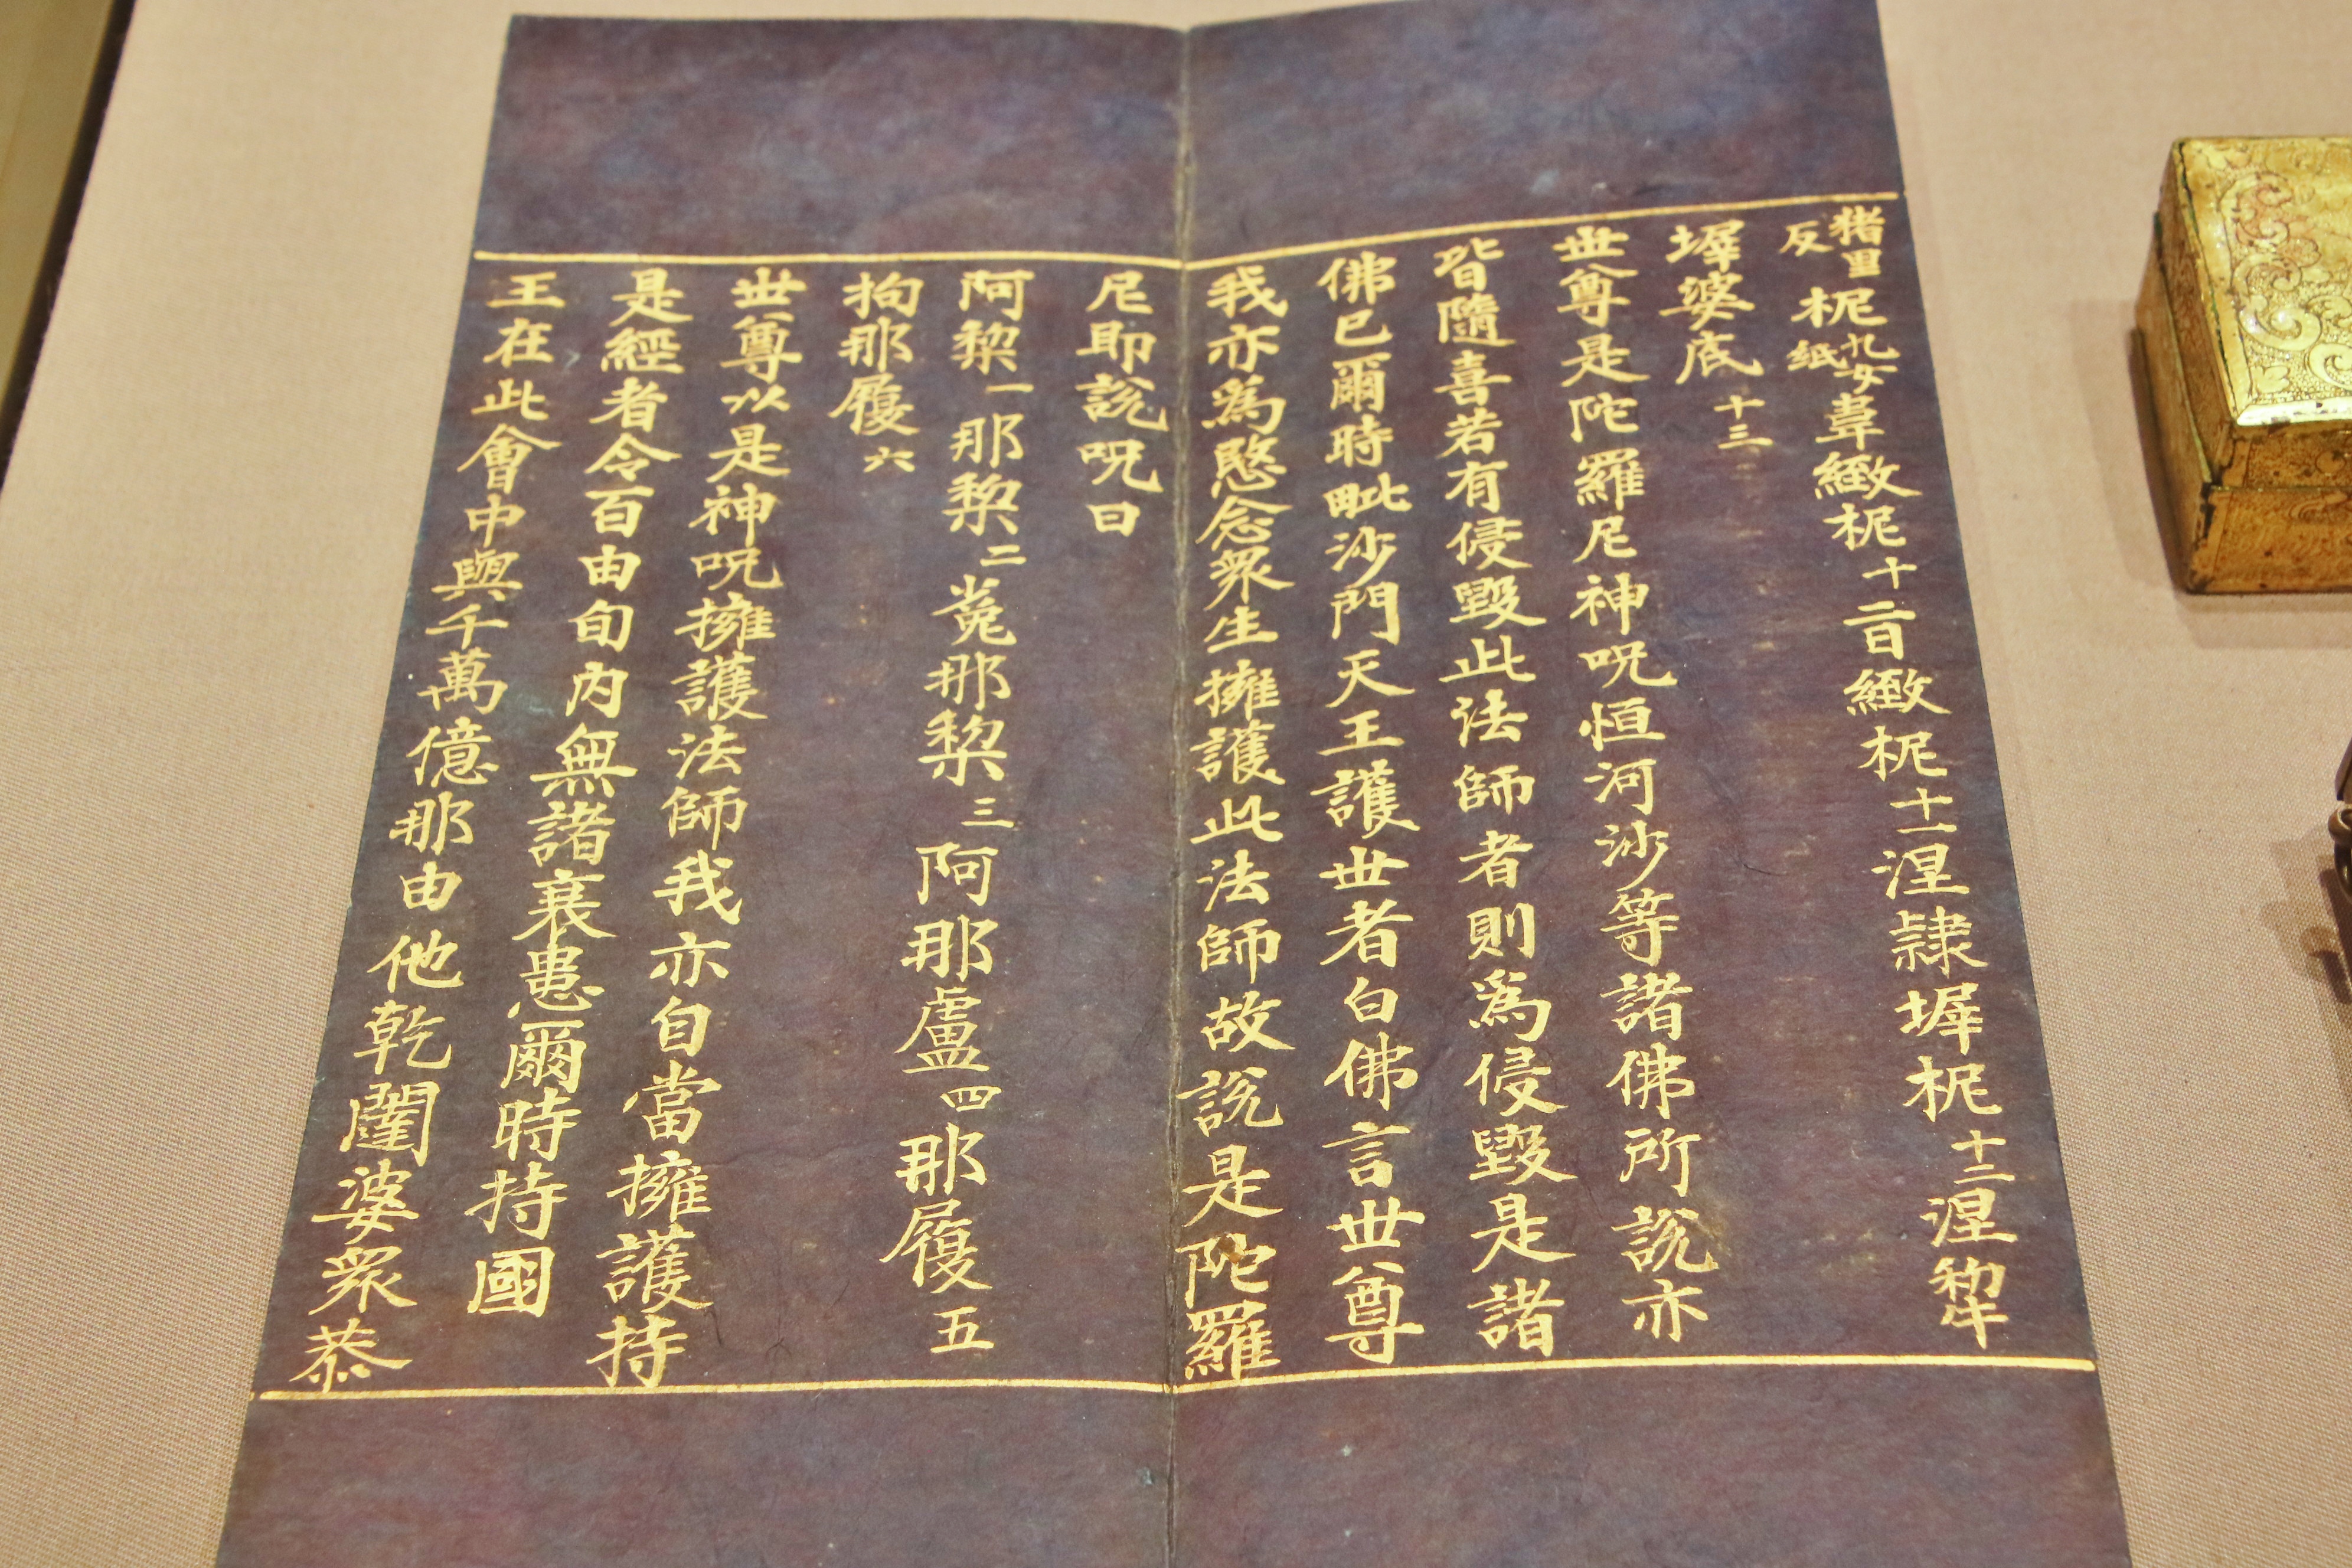 猪里反柅女九紙韋緻柅十二旨緻柅十一涅隸墀柅十二涅犂
墀婆底十三
世尊是陀羅尼神呪恒河沙等諸佛所說亦
皆隨喜若有侵毀此法師者則爲侵毀是諸
佛已爾時毗沙門天王護世者白佛言世尊
我亦爲愍念衆生擁護此法師故說是陀羅
尼即說呪曰
阿黎一那黎二㝹那黎三阿那盧四那履五
拘那履六
世尊以是神呪擁護法師我亦自當擁護持
是經者令百由旬內無諸衰患爾時持國
王在此會中與千萬億那由他乾闥婆衆恭